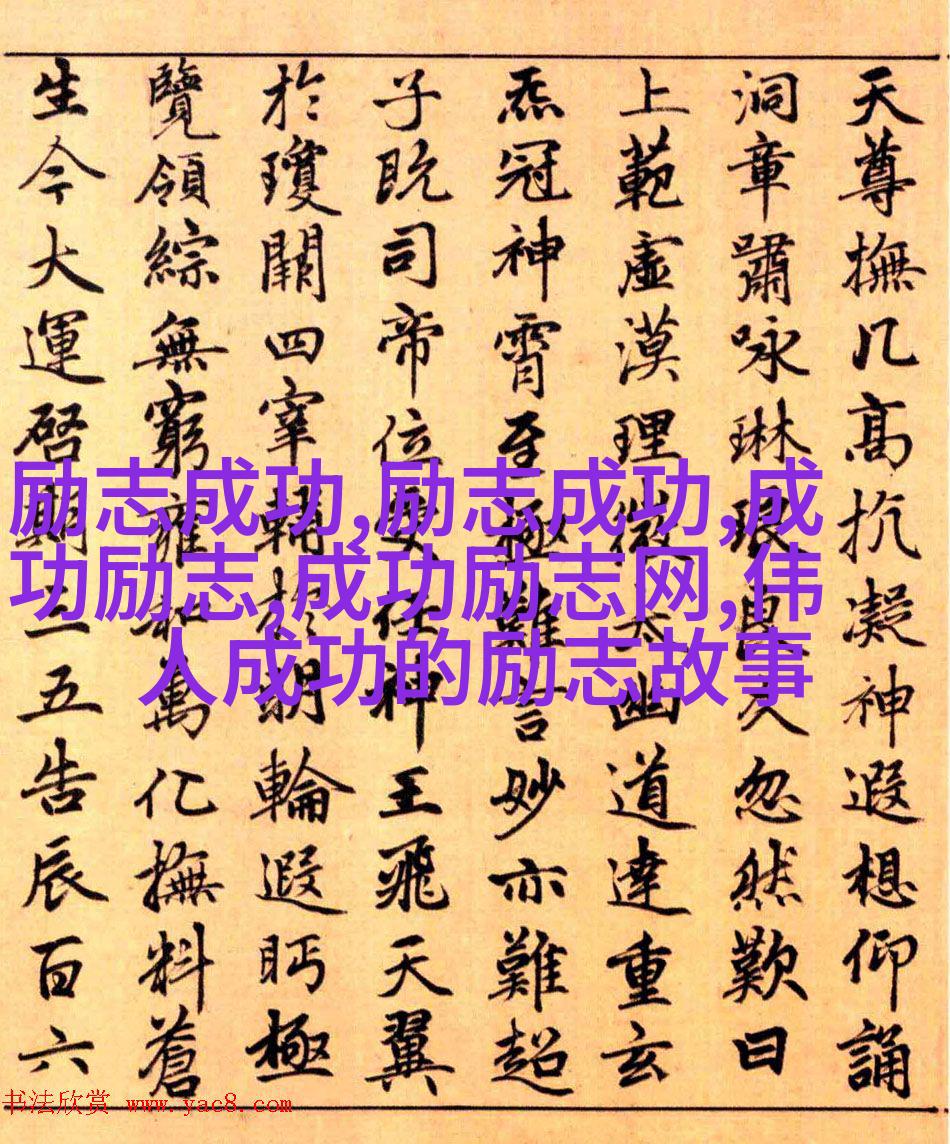 天尊撫几高抗凝神遐想仰誦
洞章嘯咏琳琅良久忽然歎曰
上範虛漠理微太幽道達重玄
炁冠神霄至極難言妙亦難超
子既司帝位受任神王飛天翼
於瓊闕四宰輔於朗輪遐眄極
覽領綜無窮雍和萬化撫料蒼
生今大運啓期三五告辰百六
励志成功,励志成功,成
功励志,成功励志网,伟
人成功的励志故事
书法欣赏 www.yac8.com